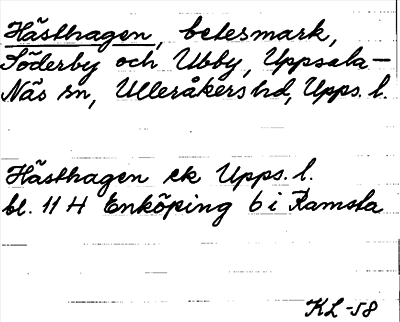 Hästhagen, betesmark,
Söderby och Ubby, Uppsala-
Näs sn, Ulleråkers hd, Upps. l.
Hästhagen ek Upps. l.
bl. 11 H Enköping 6 i Ramsta
KL -58